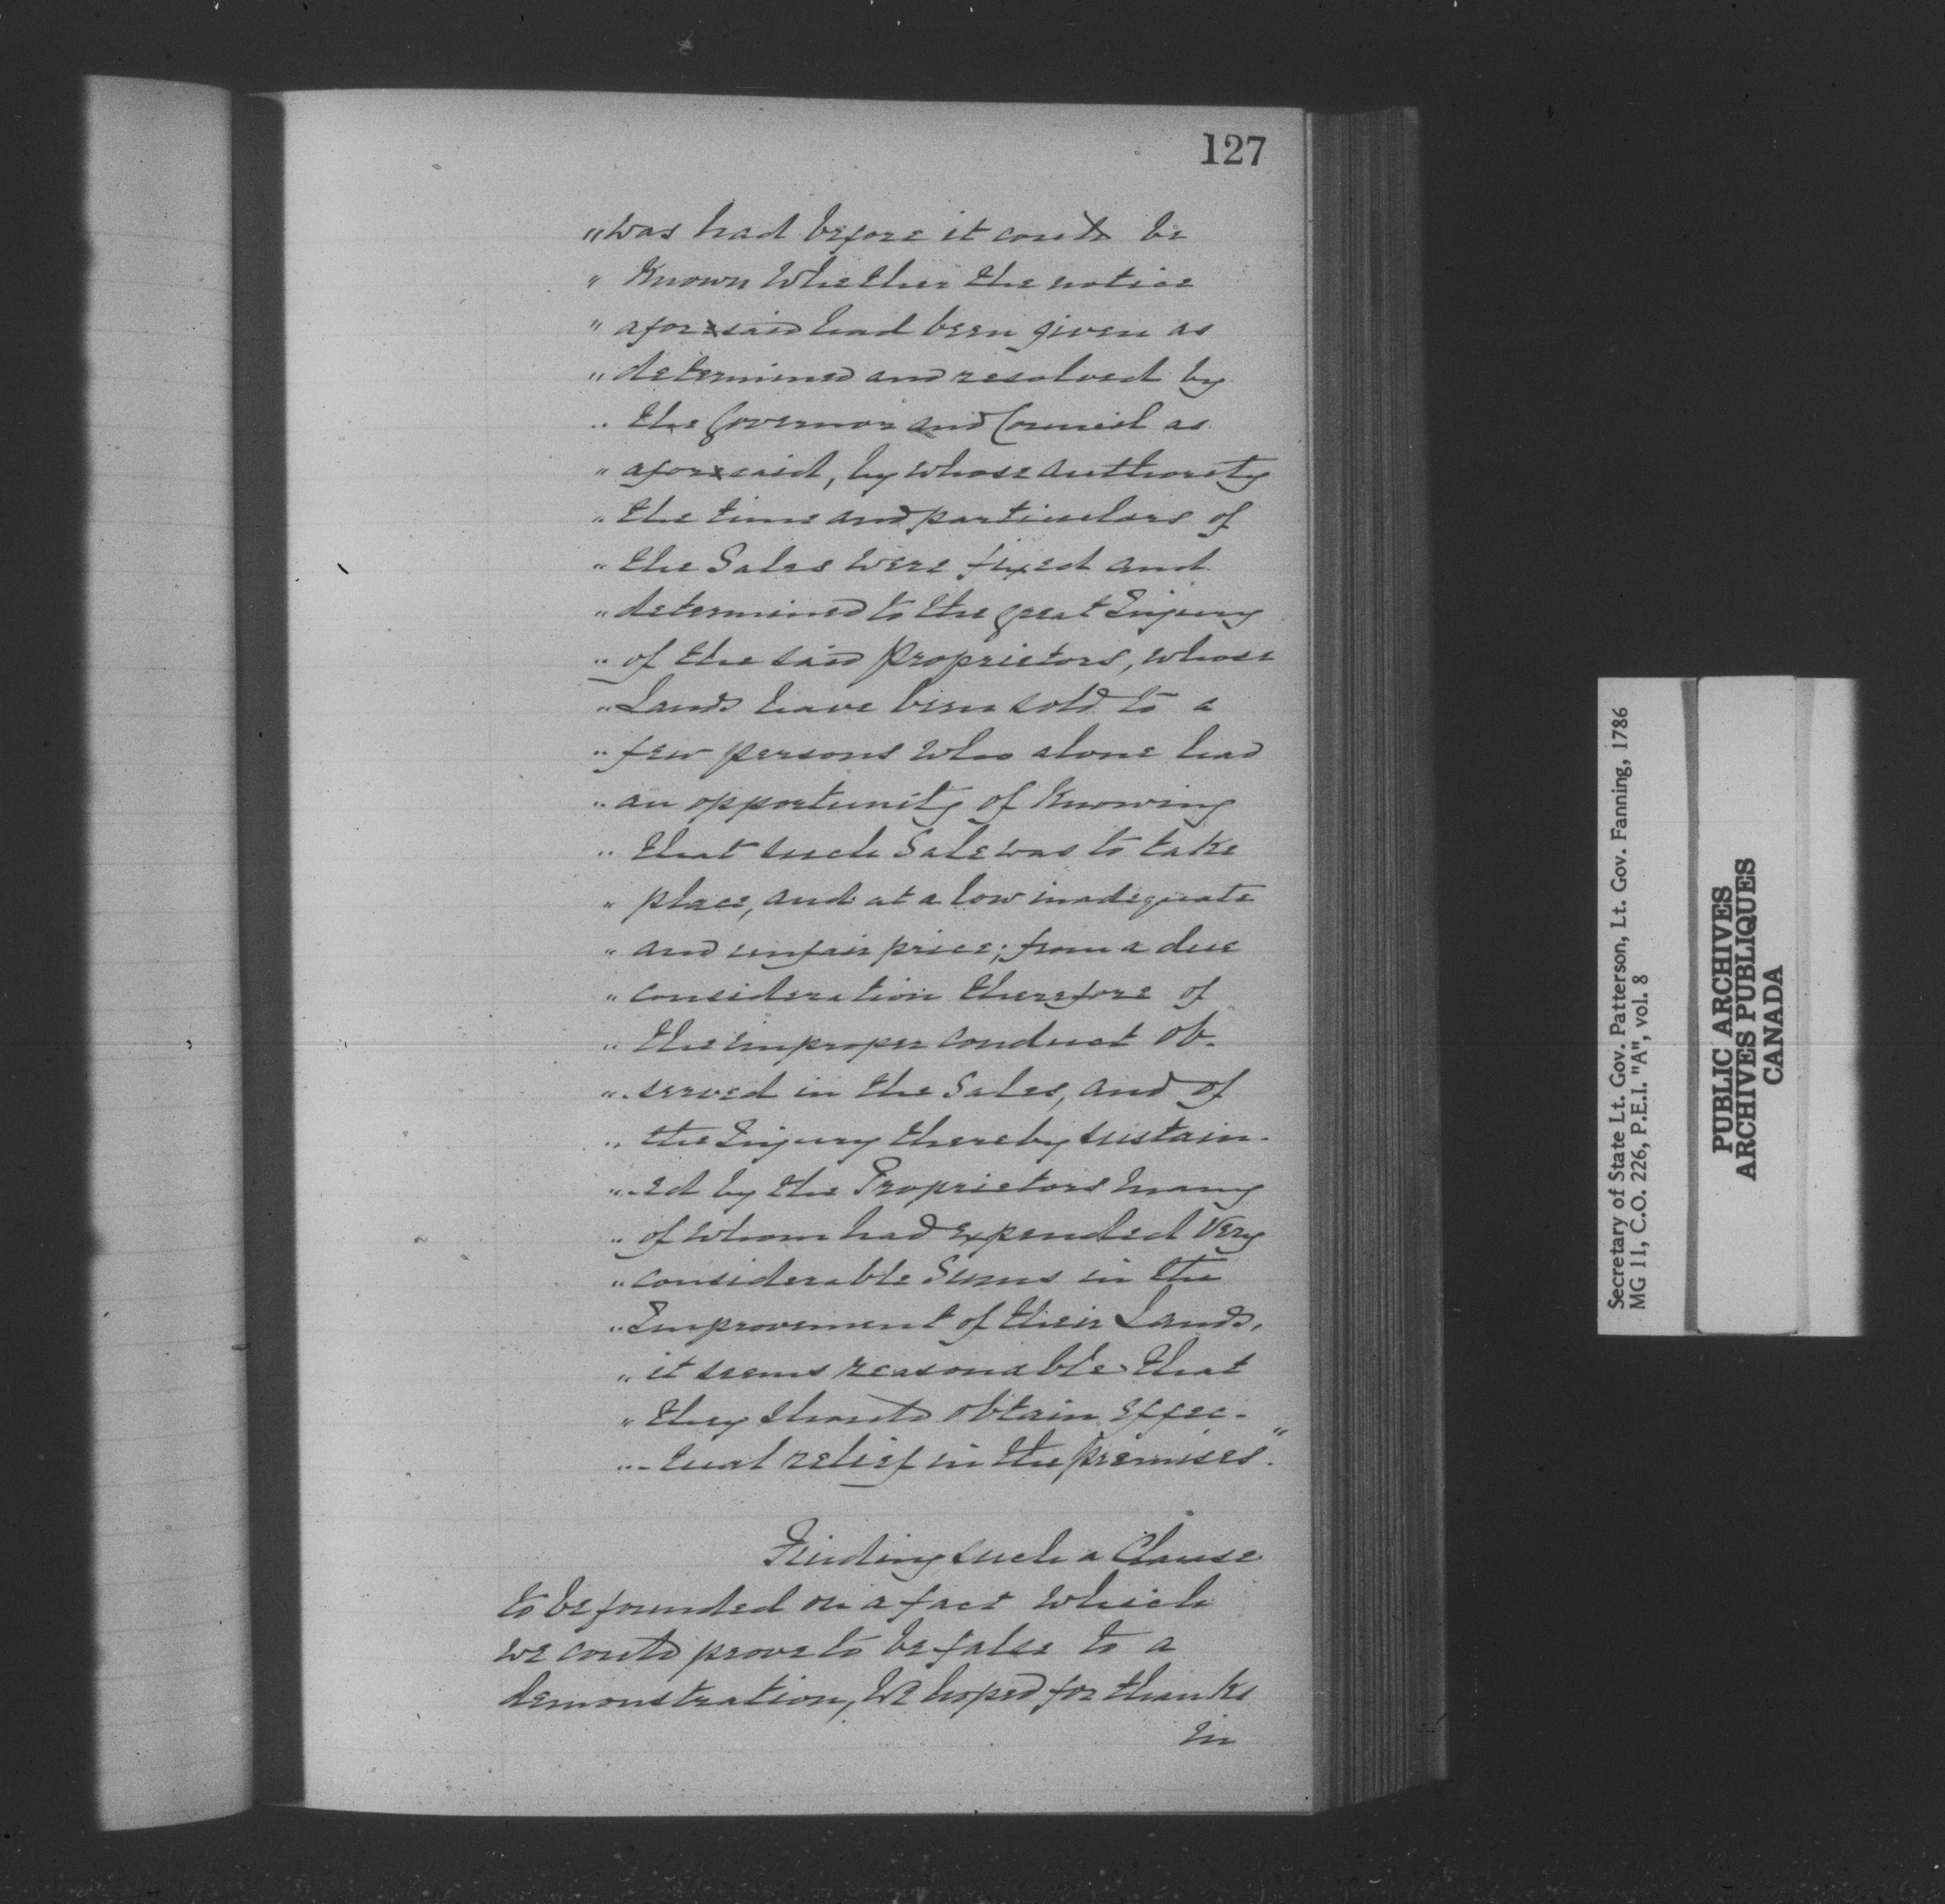 127
"was had before it could be
" Known Whether the notice
" aforesaid had been given as
" determined and resolved by
" the Governor and Council as
" aforesaid, by whose authority
" the time and particulars of
" the Sales were fixed and
" determined to the great Injury
" of the said Proprietors, whose
" Lands have been sold to a
" few persons who alone had
" an opportunity of Knowing
" that such Sale was to take
" place, and at a low inadequate
" and unfair price; from a due
" consideration therefore of
" the improper conduct ob-
" -served in the Sales, and of
" the Injury thereby sustain-
" -ed by the Proprietors many
" of whom had expended very
" considerable Sums in the
" Improvement of their Lands,
" it seems reasonable that
" they should obtain effec-
" -tual relief in the premises".
Finding such a Clause
to be founded on a fact which
we could prove to be false to a
demonstration, we hoped for thanks
in
Secretary of State Lt. Gov. Patterson, Lt. Gov. Fanning, 1786
MG 11, C.O. 226, P.E.I. "A", vol. 8
PUBLIC ARCHIVES
ARCHIVES PUBLIQUES
CANADA